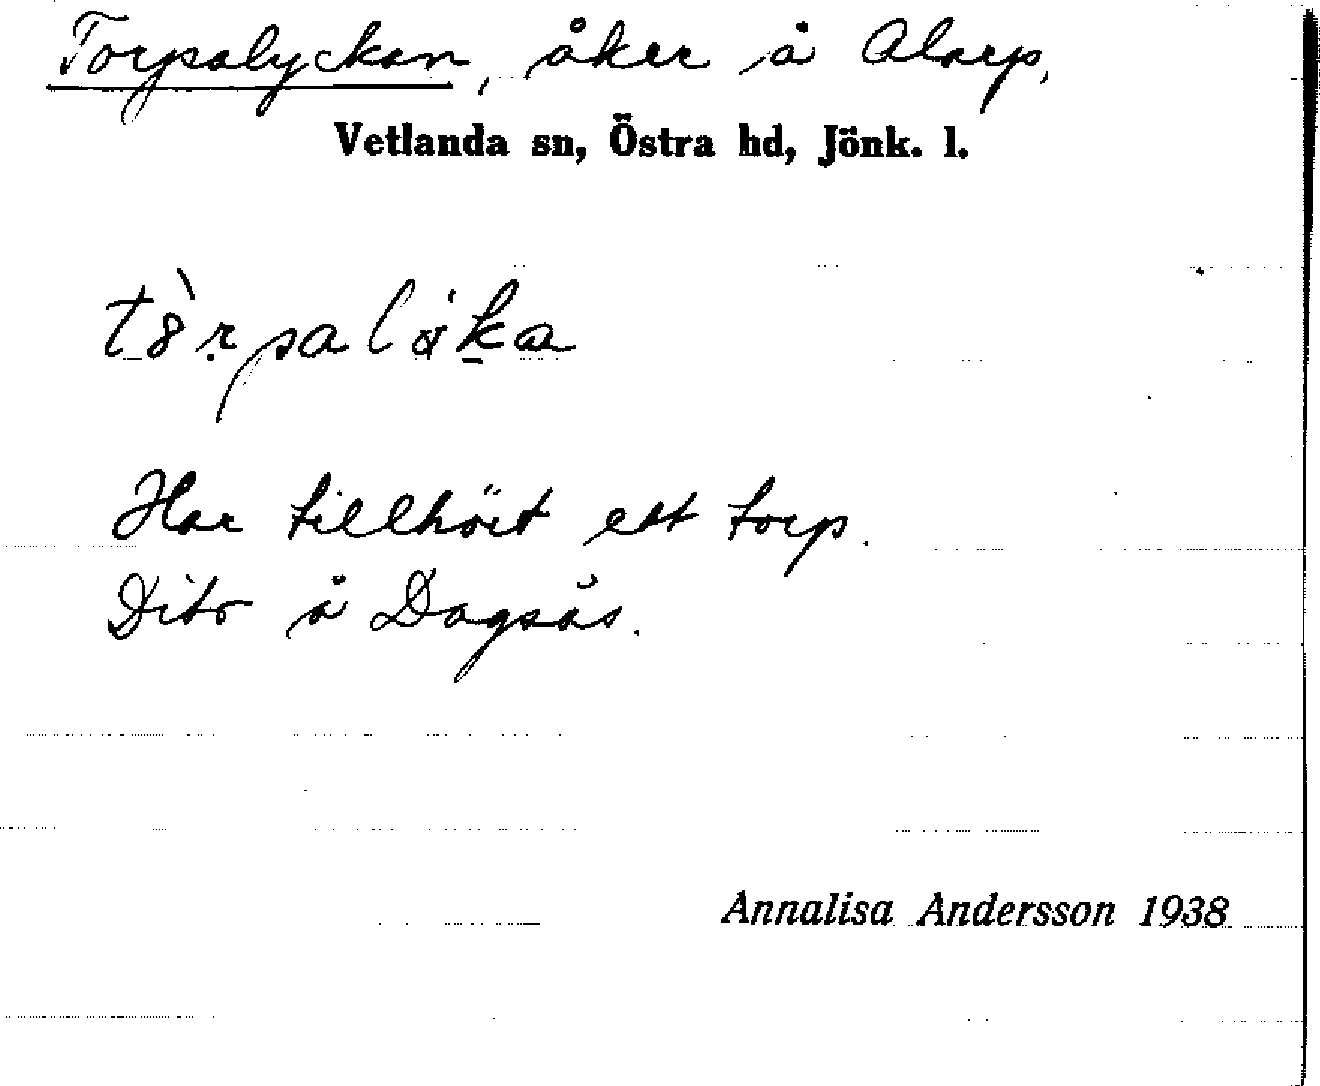 Torpalyckan, åker å Alarp,
Vetlanda sn, Östra hd, Jönk. l.
Har tillhört ett torp.
Dito å Dagsås.
Annalisa Andersson 1938